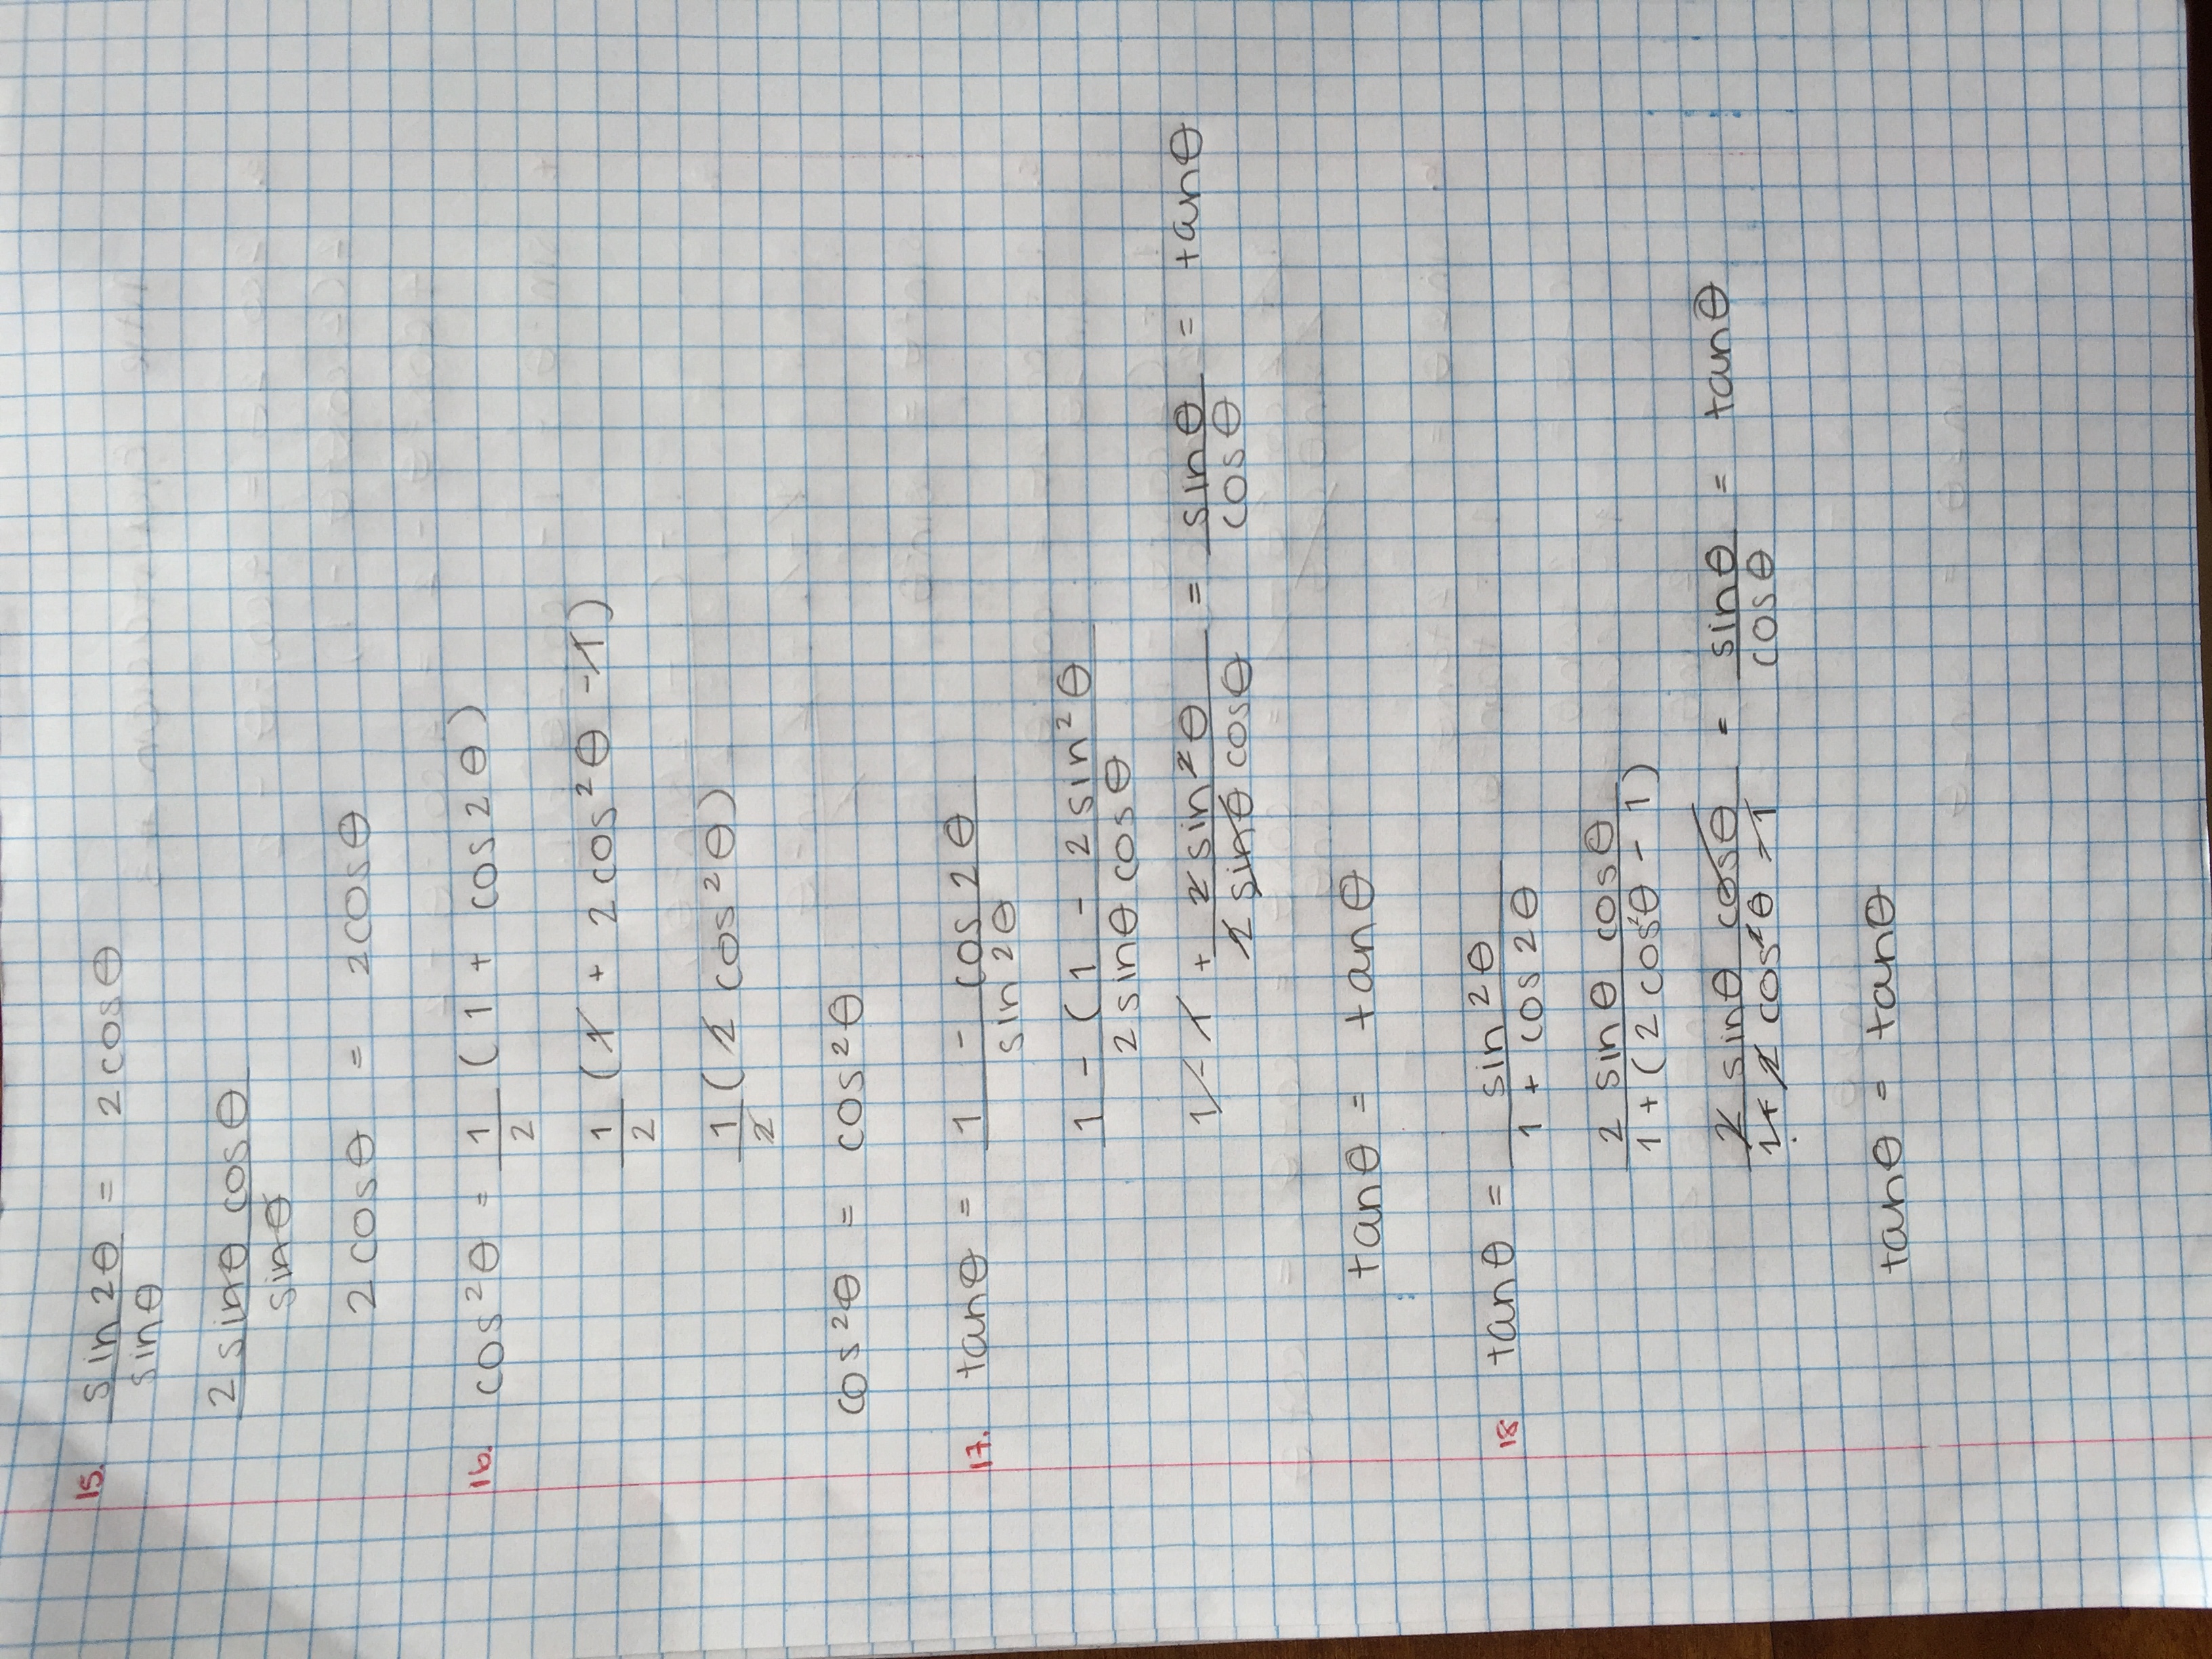 15. sin2θ/sinθ = 2cosθ
2sinθ cosθ/sinθ
2cosθ = 2cosθ
16. cos²θ = 1/2 (1 + cos2θ)
1/2 (1 + 2cos²θ -1)
1/2 (2 cos²θ)
cos²θ = cos²θ
17. tanθ = 1 - cos2θ/sin2θ
1 - (1 - 2sin²θ/2sinθ cosθ
1 - 1 + 2sin²θ/2sinθ cosθ = sinθ/cosθ = tanθ
tanθ = tanθ
18 tanθ = sin2θ/1 + cos2θ
2 sinθ cosθ/1 + (2cos²θ - 1)
2 sinθ cosθ/1 + 2cos²θ -1 = sinθ/cosθ = tanθ
tanθ = tanθ